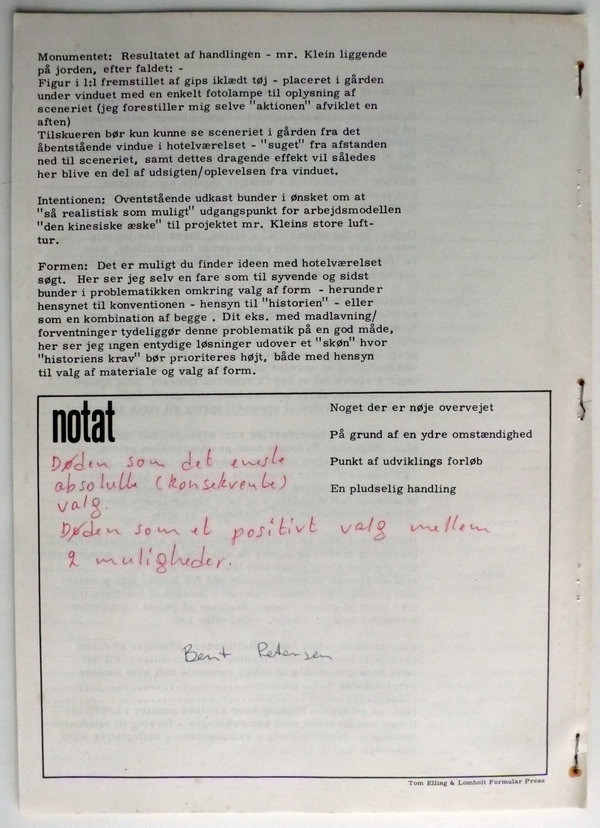 Monumentet: Resultatet af handlingen - mr. Klein liggende
på jorden, efter faldet: -
Figur i 1:1 fremstillet af gips iklædt tøj - placeret i gården
under vinduet med en enkelt fotolampe til oplysning af
sceneriet (jeg forestiller mig selve "aktionen" afviklet en
aften)
Tilskueren bør kun kunne se sceneriet i gården fra det
åbentstående vindue i hotelværelset - "suget" fra afstanden
ned til sceneriet, samt dettes dragende effekt vil således
her blive en del af udsigten/oplevelsen fra vinduet.
Intentionen: Ovenstående udkast bunder i ønsket om at
"så realistisk som muligt" udgangspunkt for arbejdsmodellen
"den kinesiske æske" til projektet mr. Kleins store luft-
tur.
Formen: Det er muligt du finder ideen med hotelværelset
søgt. Her ser jeg selv en fare som til syvende og sidst
bunder i problematikken omkring valg af form - herunder
hensynet til konventionen - hensyn til "historien" - eller
som en kombination af begge . Dit eks. med madlavning/
forventninger tydeliggør denne problematik på en god måde,
her ser jeg ingen entydige løsninger udover et "skøn" hvor
"historiens krav" bør prioriteres højt, både med hensyn
til valg af materiale og valg af form.
notat
Noget der er nøje overvejet
På grund af en ydre omstændighed
Punkt af udviklings forløb
En pludselig handling
Døden som det eneste
absolutte (konsekvente)
valg.
Døden som et positivt valg mellem
2 muligheder.
Bent Petersen
Tom Elling & Lomholt Formular Press